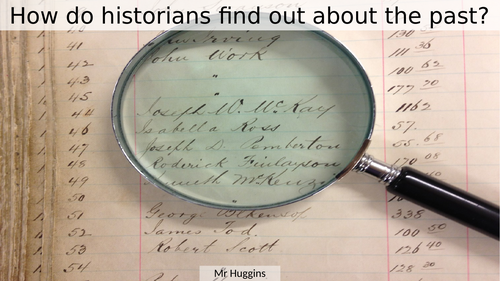 How do historians find out about the past?
41 Irving
42 John Work 111 36
43 " 100 62
45 177 70
44 Joseph W. McKay 1162
46 Isabella Ross 57.
47 Joseph D. Pemberton 68
48 Roderick Finlayson 170 08
49 Kenneth McKenzie
50
51 George 338
52 James Tod 100 50
53 Robert Scott 126 40
54 128 30
Mr Huggins